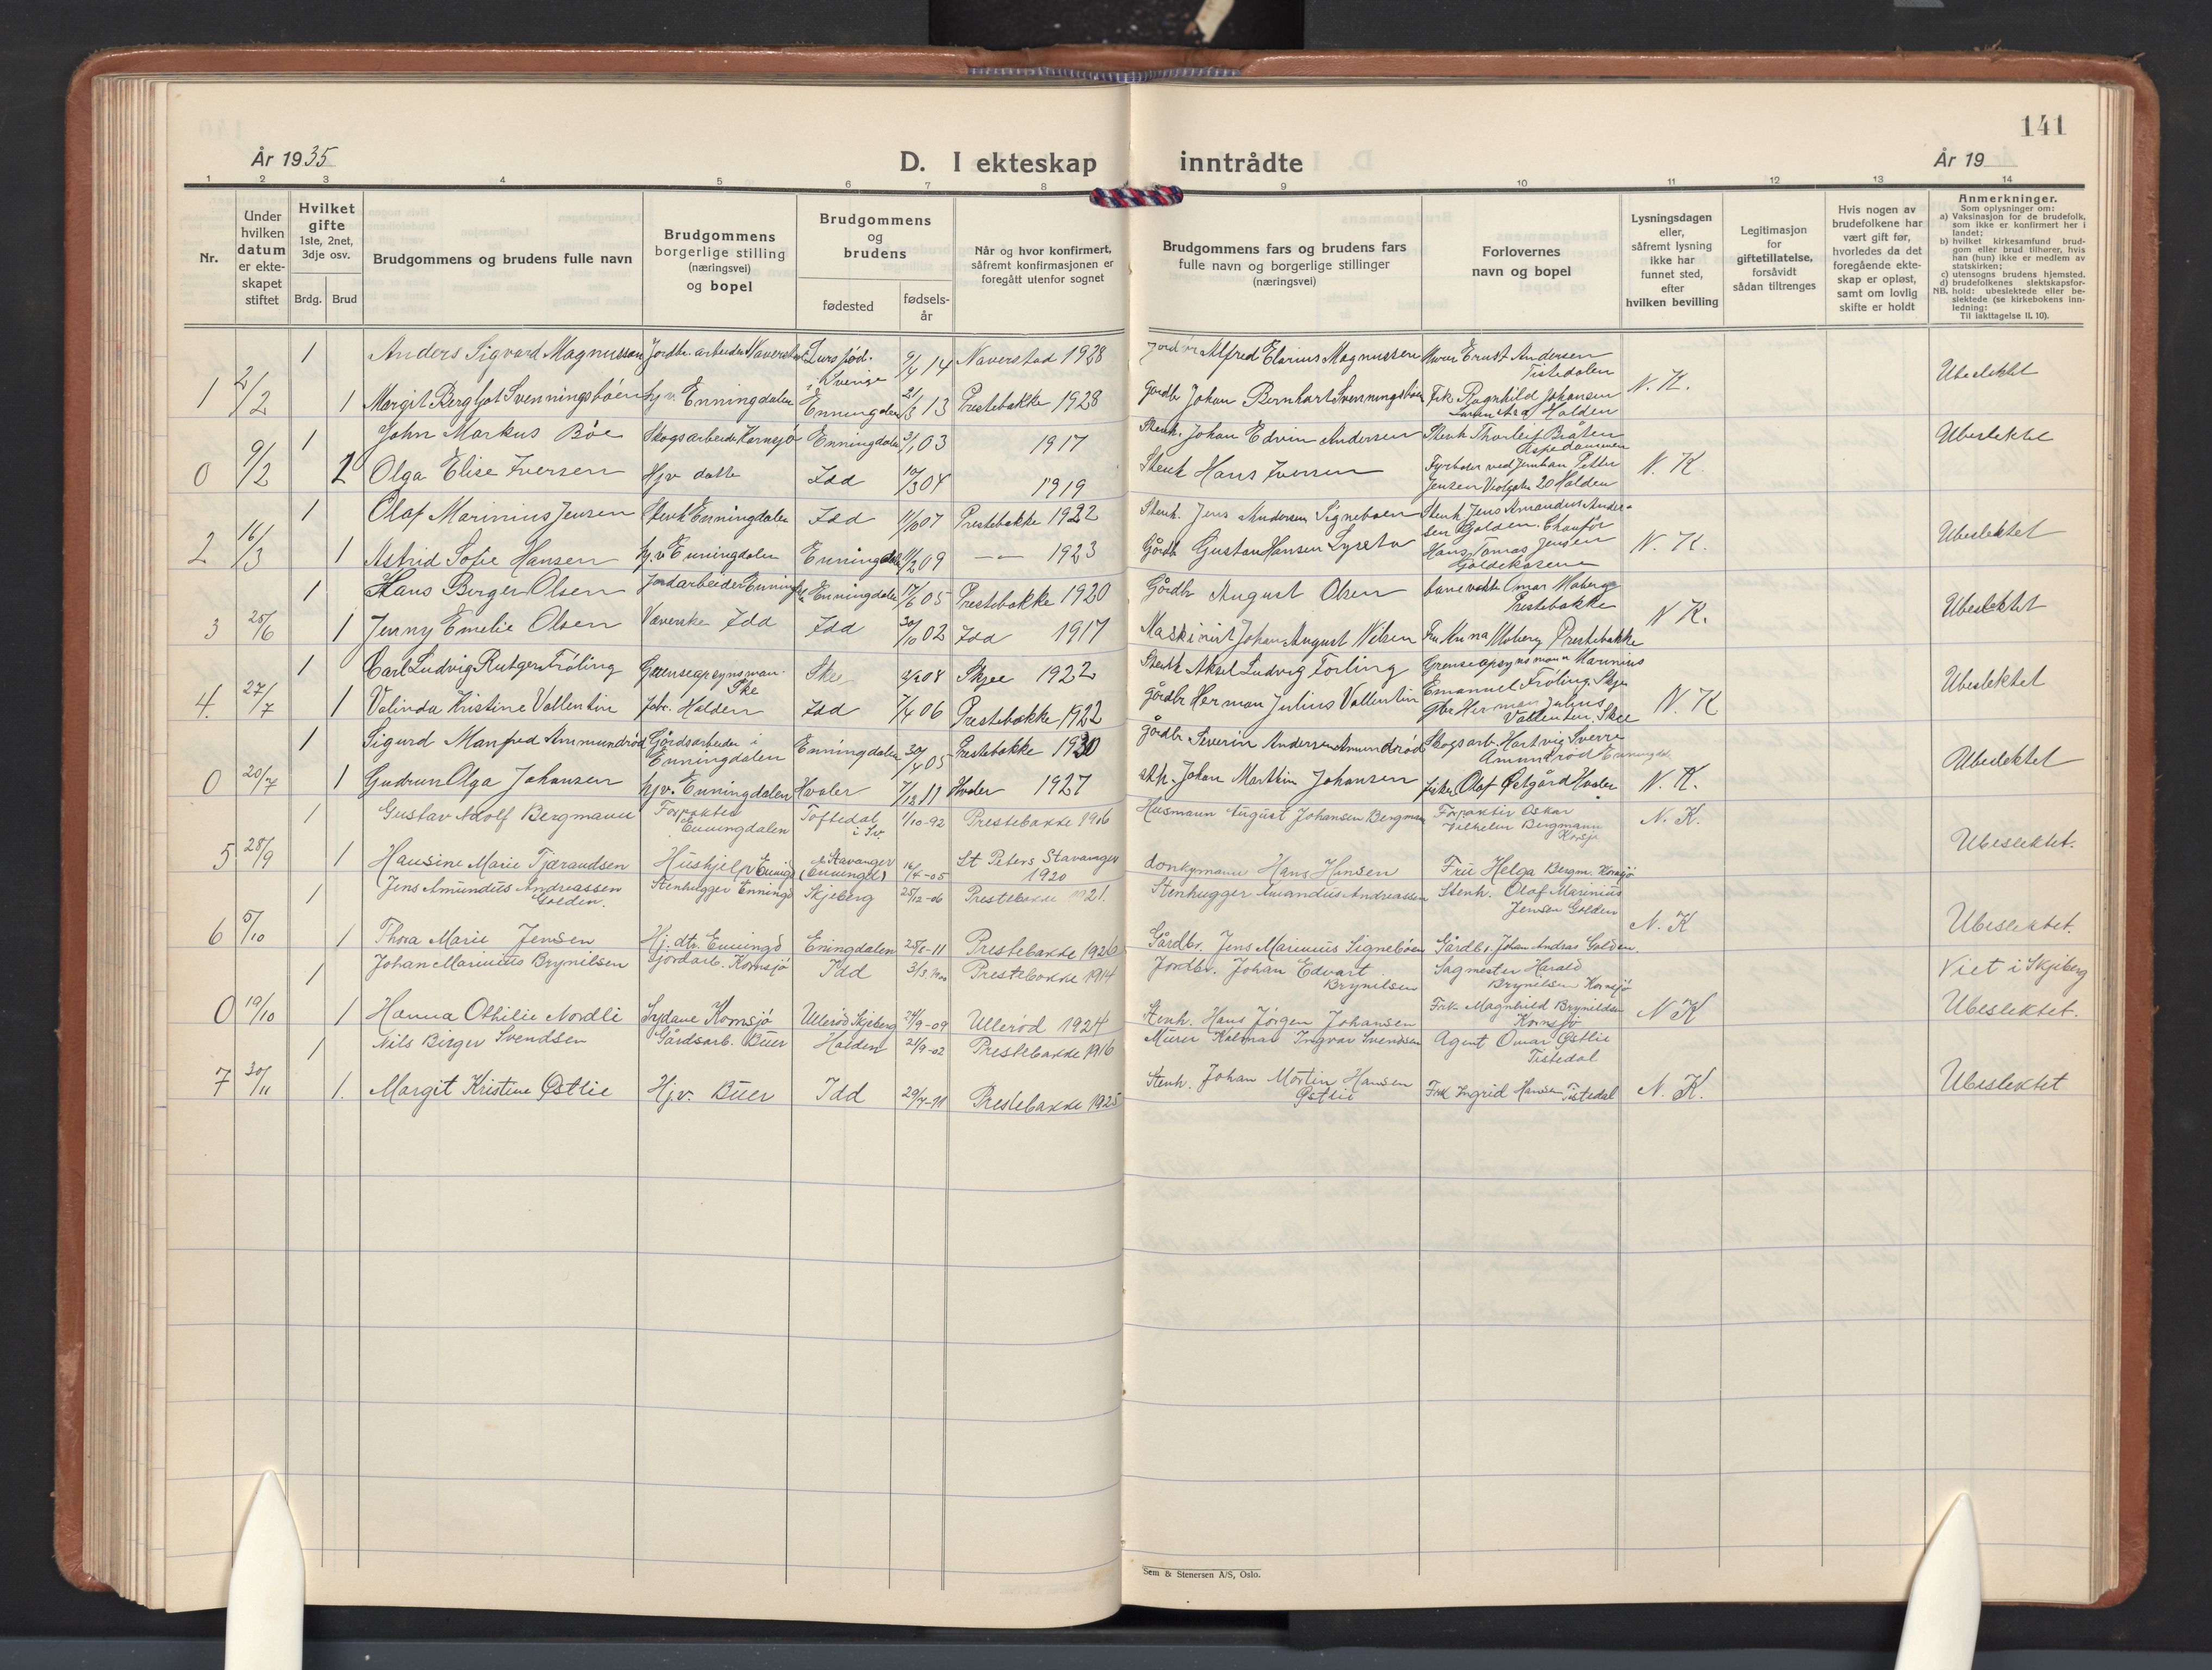 141
År 1935
D. I ekteskap inntrådte
År 19
1 2 3 4 5 6 7 8 9 10 11 12 13 14
Nr.
Under hvilken datum er ekteskapet stiftet
Hvilket gifte 1ste, 2net, 3dje osv.
Brdg. Brud
Brudgommens og brudens fulle navn
Brudgommens borgerlige stilling (næringsvei) og bopel
Brudgommens og brudens
fødested
fødselsår
Når og hvor konfirmert, såfremt konfirmasjonen er foregått utenfor sognet
Brudgommens fars og brudens fars fulle navn og borgerlige stillinger (næringsvei)
Forlovernes navn og bopel
Lysningsdagen eller, såfremt lysning ikke har funnet sted, efter hvilken bevilling
Legitimasjon for giftetillatelse, forsåvidt sådan tiltrenges
Hvis nogen av brudefolkene har vært gift før, hvorledes da det foregående ekteskap er opløst, samt om lovlig skifte er holdt
Anmerkninger.
Som oplysninger om:
a) Vaksinasjon for de brudefolk, som ikke er konfirmert her i landet;
b) hvilket kirkesamfund brudgom eller brud tilhører, hvis han (hun) ikke er medlem av statskirken;
c) utensogns brudens hjemsted.
d) brudefolkenes slektskapsforhold: ubeslektede eller beslektede (se kirkebokens innledning:
NB.
Til iakttagelse II. 10).
1 Anders Sigvard Magnusson Jordbr. arbeider Naverstad Lurs fød. i Sverige 9/4 14 Naverstad 1928 Alfred Elarius Magnussen Murer Ernst Andersen Tistedalen
1 2/2 1 Margit Bergljot Svenningsbøen hj.v. Enningdalen Enningdalen 13 Prestebakke 1928 Gårdbr Johan Bernhart Svenningsbøen Frk. Ragnhild Johansen Halden N. K. Ubeslektet
1 John Markus Bøe Skogsarbeider Kornsjø Enningdalen 03 1917 Stenh. Johan Edvin Andersen Stenh Thorleif Bråten Aspedammen Ubeslektet
0 9/2 2 Olga Elise Iversen Hjv datte Idd 10/3 04 1919 Stenh Hans Iversen Fyrbøter ved Jernban Petter Jensen 20 Halden N. K.
1 Olaf Marinius Jensen Stenh Enningdalen Idd 07 Prestebakke 1922 Stenh. Jens Andersen Signebøen Stenh. Jens Amandus Andersen Golden. Chaufør
2 16/3 1 Astrid Sofie Hansen hj.v Enningdalen Enningdalen 09 —"— 1923 Gårdb Gustav Hansen Hans Tomas Jensen N. K. Ubeslektet
1 Hans Birger Olsen Jordarbeider Enningdalen Enningdalen 17/6 05 Prestebakke 1920 Gårdbr August Olsen banevokter Omar Moberg Prestebakke
3 25/6 1 Jenny Emelie Olsen Væverske Idd Idd 30/10 02 Idd 1917 Maskinist Johan August Nilsen Fru Anna Moberg Prestebakke N K. Ubeslektet
1 Carl Ludvig Rutger Frøling Grenseopsynsman Ske Skee 08 Skjee 1922 Stenh Aksel Ludvig Forling Grenseopsynsmann Marinius Emanuel Frøling Skje
4. 27/7 1 Valinda Kristine Vallentin fabr. Halden Idd 7/4 06 Prestebakke 1922 gårdbr Herman Julius Vallentin Gbr Herman Julius Vallentin, Skee N. K Ubeslektet
1 Sigurd Manfred Ammundrød Gårdsarbeider i Enningdalen Enningdalen 30/4 05 Prestebakke 1920 gårdbr Severin Andersen Amundrød Skogsarb. Hartvig Sverre Amundrød Enningdl.
0 20/7 1 Gudrun Olga Johansen hjv. Enningdalen Hvaler 7/12 11 Hvaler 1927 Johan Marthin Johansen fisker Olaf Østgård Hvaler N. K. Ubeslektet
1 Gustav Adolf Bergmann Forpakter Enningdalen Töftedal i Sv. 1/10-92 Prestebakke 1906 Husmann August Johansen Bergman Forpakter Oskar Vilhelm Bergmann Korsjø N. K.
5 28/9 1 Hansine Marie Tjærandsen Hushjelp Enningd Stavanger (Enningd) 16/4-05 St Peters Stavanger 1920 donkymann Hans Hansen Fru Helga Bergm. Kornsjø Ubeslektet.
1 Jens Amundus Andreassen Golden. Stenhugger Enningd Skjeberg 25/12-06 Prestebakke 1921. Stenhugger Amandus Andreassen Stenh. Olaf Marinius Jensen Golden
6 5/10 1 Thora Marie Jensen Hj. dtr. Enningd Eningdalen 25/8-11 Prestebakke 1926 Gårdbr. Jens Marinius Signebøen Gårdbr. Johan Andras Golden N. K Ubeslektet.
1 Johan Marinius Brynilsen Gjordarb. Kornsjø Idd 3/3 1900 Prestebakke 1914 Jordbr. Johan Edvart Brynilsen Sagmester Harald Brynilsen Kornsjø Viet i Skjeberg
0 19/10 1 Hanna Othilie Nordli Sydame Kornsjø Ullerød Skjeberg 24/9-09 Ullerød 1924 Stenh. Hans Jörgen Johansen Frk Magnhild Brynildsen Kornsjø N K Ubeslektet.
1 Nils Birger Svendsen Gårdsarb. Buer Halden 21/9-02 Prestebakke 1916 Murer Kalmar Ingvar Svendsen Agent Omar Østlie Tistedal
7 30/11 1. Margit Kristine Østlie Hj.v. Buer Idd 29/7-11 Prestebakke 1925 Stenh. Johan Martin Hansen Østlie Frk Ingrid Hansen Tistedal N. K. Ubeslektet
Sem & Stenersen A/S, Oslo.